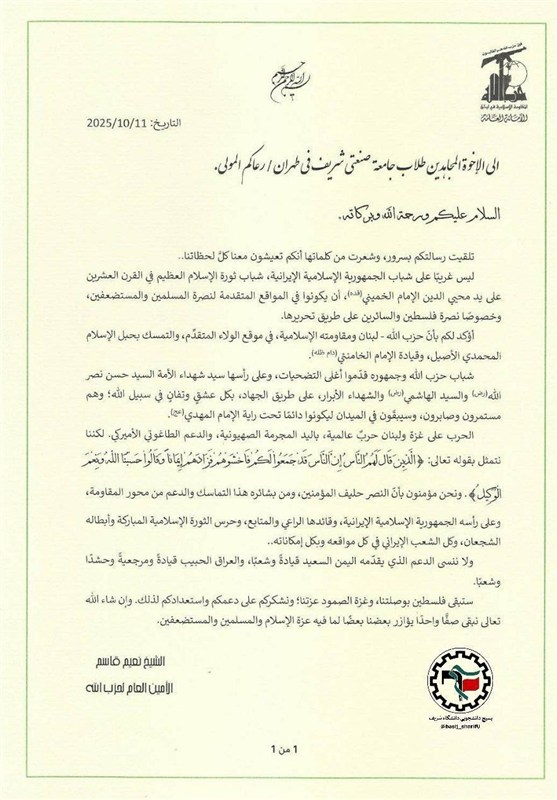 بسم الله الرحمن الرحيم
الأمانة العامة
التاريخ: 2025/10/11
الى الإخوة المجاهدين طلاب جامعة صنعتي شريف في طهران / رعاكم المولى.
السلام عليكم ورحمة الله وبركاته.
تلقيت رسالتكم بسرور، وشعرت من كلماتها أنكم تعيشون معنا كلّ لحظاتنا..
ليس غريبًا على شباب الجمهورية الإسلامية الإيرانية، شباب ثورة الإسلام العظيم في القرن العشرين
على يد محيي الدين الإمام الخميني(قده)، أن يكونوا في المواقع المتقدمة لنصرة المسلمين والمستضعفين،
وخصوصًا نصرة فلسطين والسائرين على طريق تحريرها.
أؤكد لكم بأنّ حزب الله - لبنان ومقاومته الإسلامية، في موقع الولاء المتقدّم، والتمسك بحبل الإسلام
المحمدي الأصيل، وقيادة الإمام الخامنئي(دام ظله).
شباب حزب الله وجمهوره قدّموا أغلى التضحيات، وعلى رأسها سيد شهداء الأمة السيد حسن نصر
الله(رض) والسيد الهاشمي(رض) والشهداء الأبرار، على طريق الجهاد، بكل عشقٍ وتفانٍ في سبيل الله؛ وهم
مستمرون وصابرون، وسيبقَون في الميدان ليكونوا دائمًا تحت راية الإمام المهدي(عج).
الحرب على غزة ولبنان حربٌ عالمية، باليد المجرمة الصهيونية، والدعم الطاغوتي الأميركي. لكننا
نتمثل بقوله تعالى: ﴿الَّذِينَ قَالَ لَهُمُ النَّاسُ إِنَّ النَّاسَ قَدْ جَمَعُوا لَكُمْ فَاخْشَوْهُمْ فَزَادَهُمْ إِيمَانًا وَقَالُوا حَسْبُنَا اللَّهُ وَنِعْمَ
الْوَكِيلُ﴾. ونحن مؤمنون بأنّ النصر حليف المؤمنين، ومن بشائره هذا التماسك والدعم من محور المقاومة،
وعلى رأسه الجمهورية الإسلامية الإيرانية، وقائدها الراعي والمتابع، وحرس الثورة الإسلامية المباركة وأبطاله
الشجعان، وكل الشعب الإيراني في كل مواقعه وبكل إمكاناته..
ولا ننسى الدعم الذي يقدّمه اليمن السعيد قيادةً وشعبًا، والعراق الحبيب قيادةً ومرجعيةً وحشدًا
وشعبًا.
ستبقى فلسطين بوصلتنا، وغزة الصمود عزتنا؛ ونشكركم على دعمكم واستعدادكم لذلك. وإن شاء الله
تعالى نبقى صفًّا واحدًا يؤازر بعضنا بعضًا لما فيه عزة الإسلام والمسلمين والمستضعفين.
الشيخ نعيم قاسم
الأمين العام لحزب الله
بسیج دانشجویی دانشگاه شریف
@basij_sharifU
1 من 1